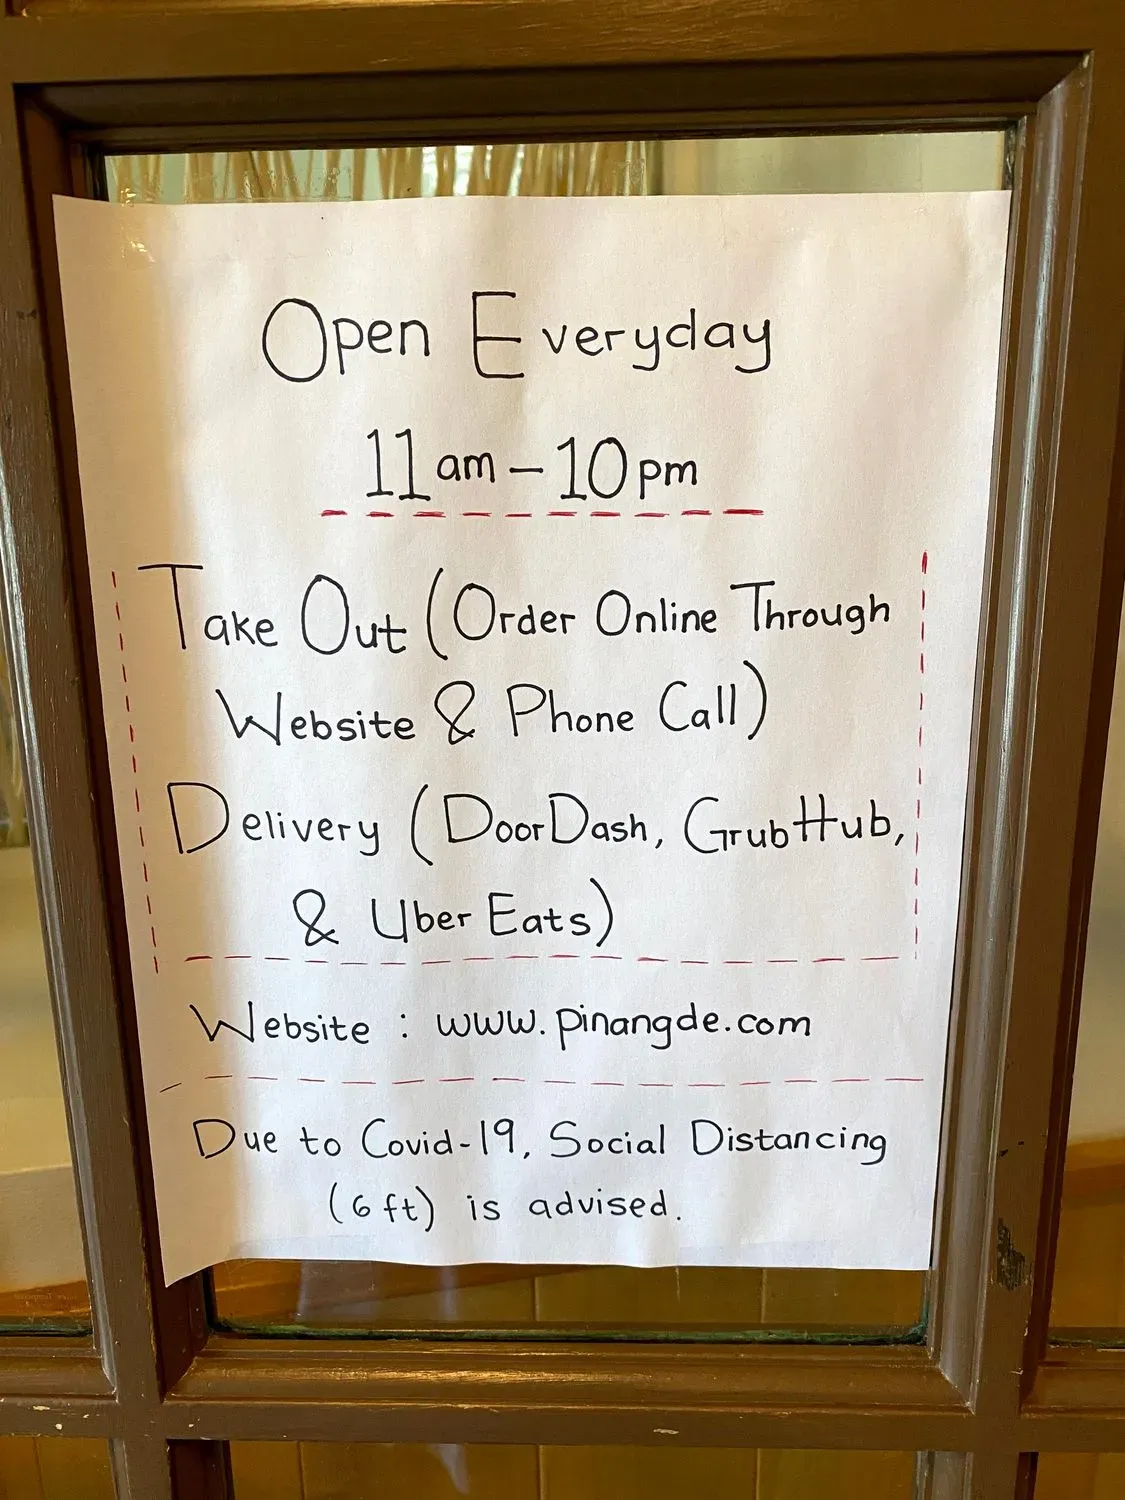 Open Everyday
11am - 10pm
Take Out (Order Online Through
Website & Phone Call)
Delivery (DoorDash, GrubHub,
& Uber Eats)
Website : www.pinangde.com
Due to Covid-19, Social Distancing
(6 ft) is advised.